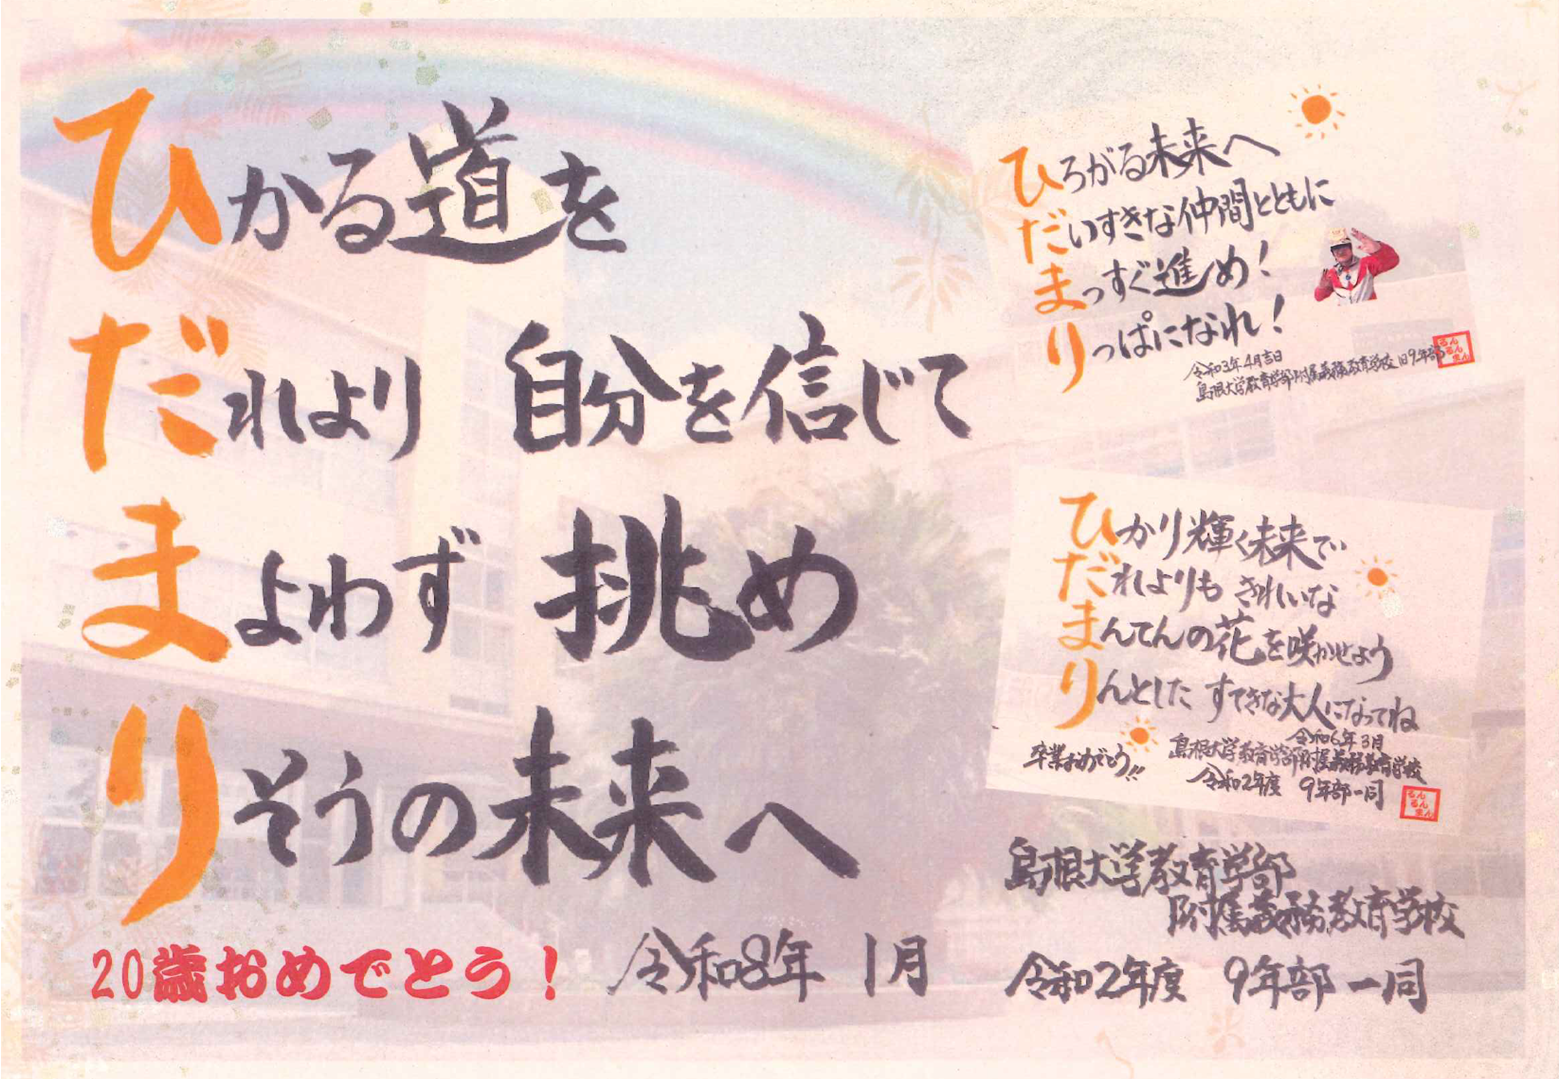 ひかる道を
だれより 自分を信じて
まよわず 挑め
りそうの未来へ
20歳おめでとう！ 令和8年 1月
ひろがる未来へ
だいすきな仲間とともに
まっすぐ進め！
りっぱになれ！
令和3年4月吉日
島根大学教育学部附属義務教育学校 旧9年部
ひかり輝く未来で
だれよりも きれいな
まんてんの花を咲かせよう
りんとした すてきな大人になってね
卒業おめでとう!!
令和6年3月
島根大学教育学部附属義務教育学校
令和2年度 9年部一同
島根大学教育学部
附属義務教育学校
令和2年度 9年部一同